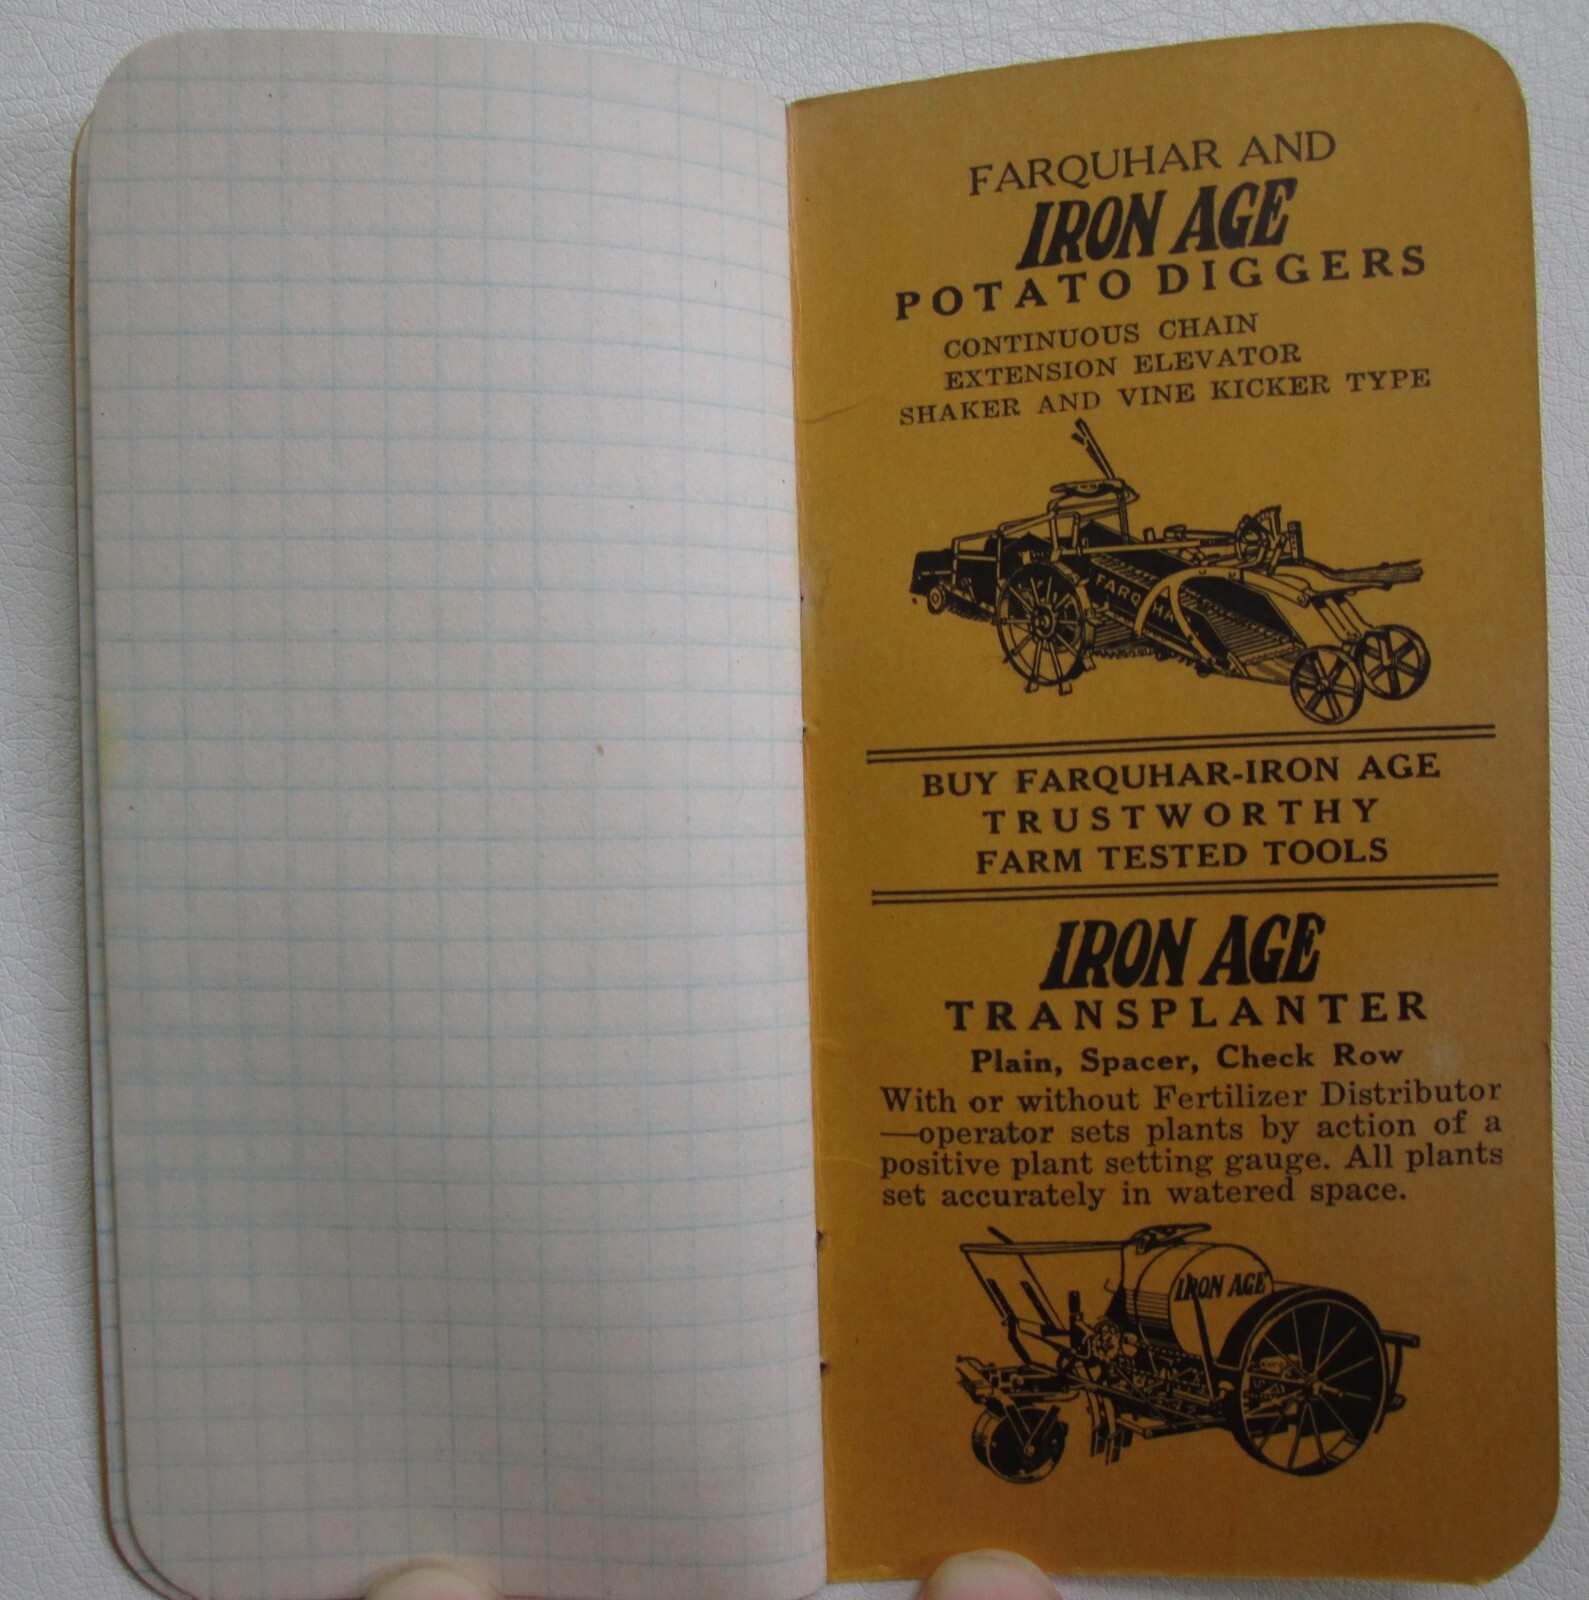 FARQUHAR AND
IRON AGE
POTATO DIGGERS
CONTINUOUS CHAIN
EXTENSION ELEVATOR
SHAKER AND VINE KICKER TYPE
FARQUHAR
BUY FARQUHAR-IRON AGE
TRUSTWORTHY
FARM TESTED TOOLS
IRON AGE
TRANSPLANTER
Plain, Spacer, Check Row
With or without Fertilizer Distributor
—operator sets plants by action of a
positive plant setting gauge. All plants
set accurately in watered space.
IRON AGE